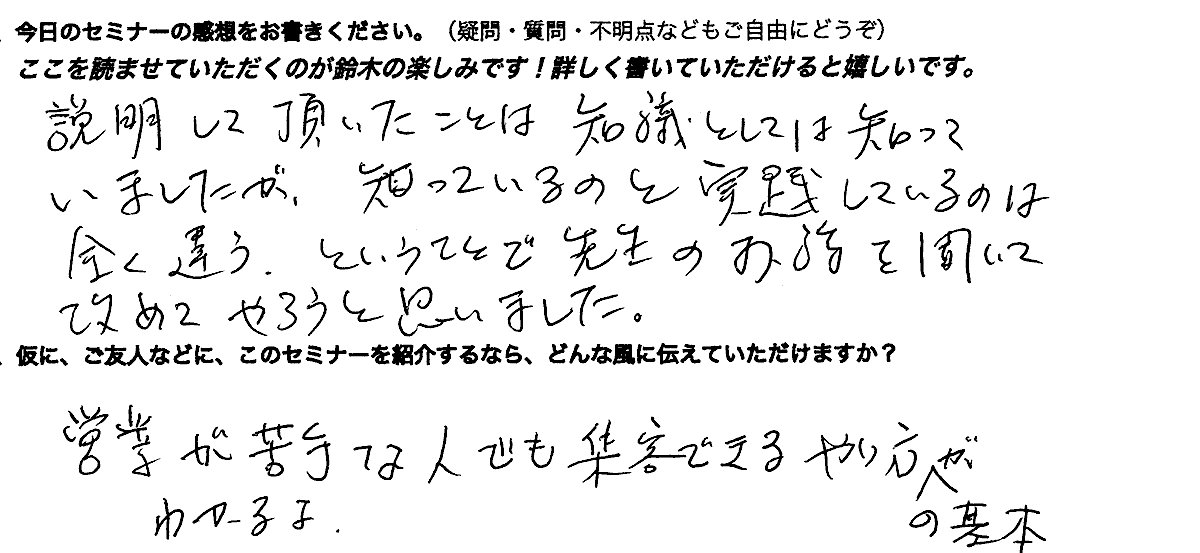 今日のセミナーの感想をお書きください。（疑問・質問・不明点などもご自由にどうぞ）
ここを読ませていただくのが鈴木の楽しみです！詳しく書いていただけると嬉しいです。
説明して頂いたことは知識としては知って
いましたが、知っているのと実践しているのは
全く違う.ということで先生のお話を聞いて
改めてやろうと思いました。
仮に、ご友人などに、このセミナーを紹介するなら、どんな風に伝えていただけますか？
営業が苦手な人でも集客できるやり方の基本が
わかるよ.